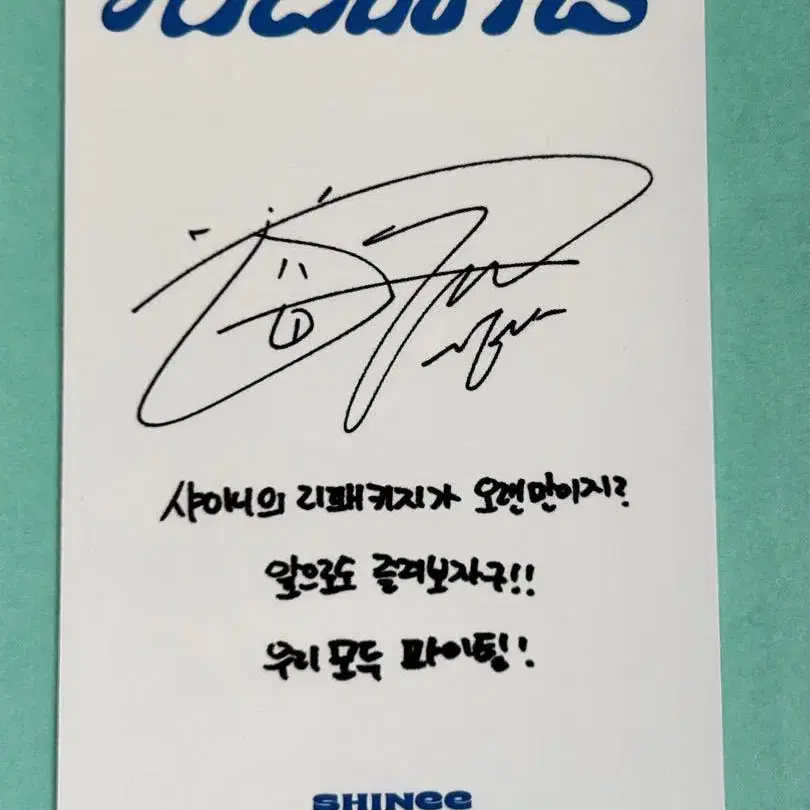 샤이니의 리패키지가 오랜만이지?
앞으로도 즐겨보자구!!
우리 모두 파이팅!
SHINee